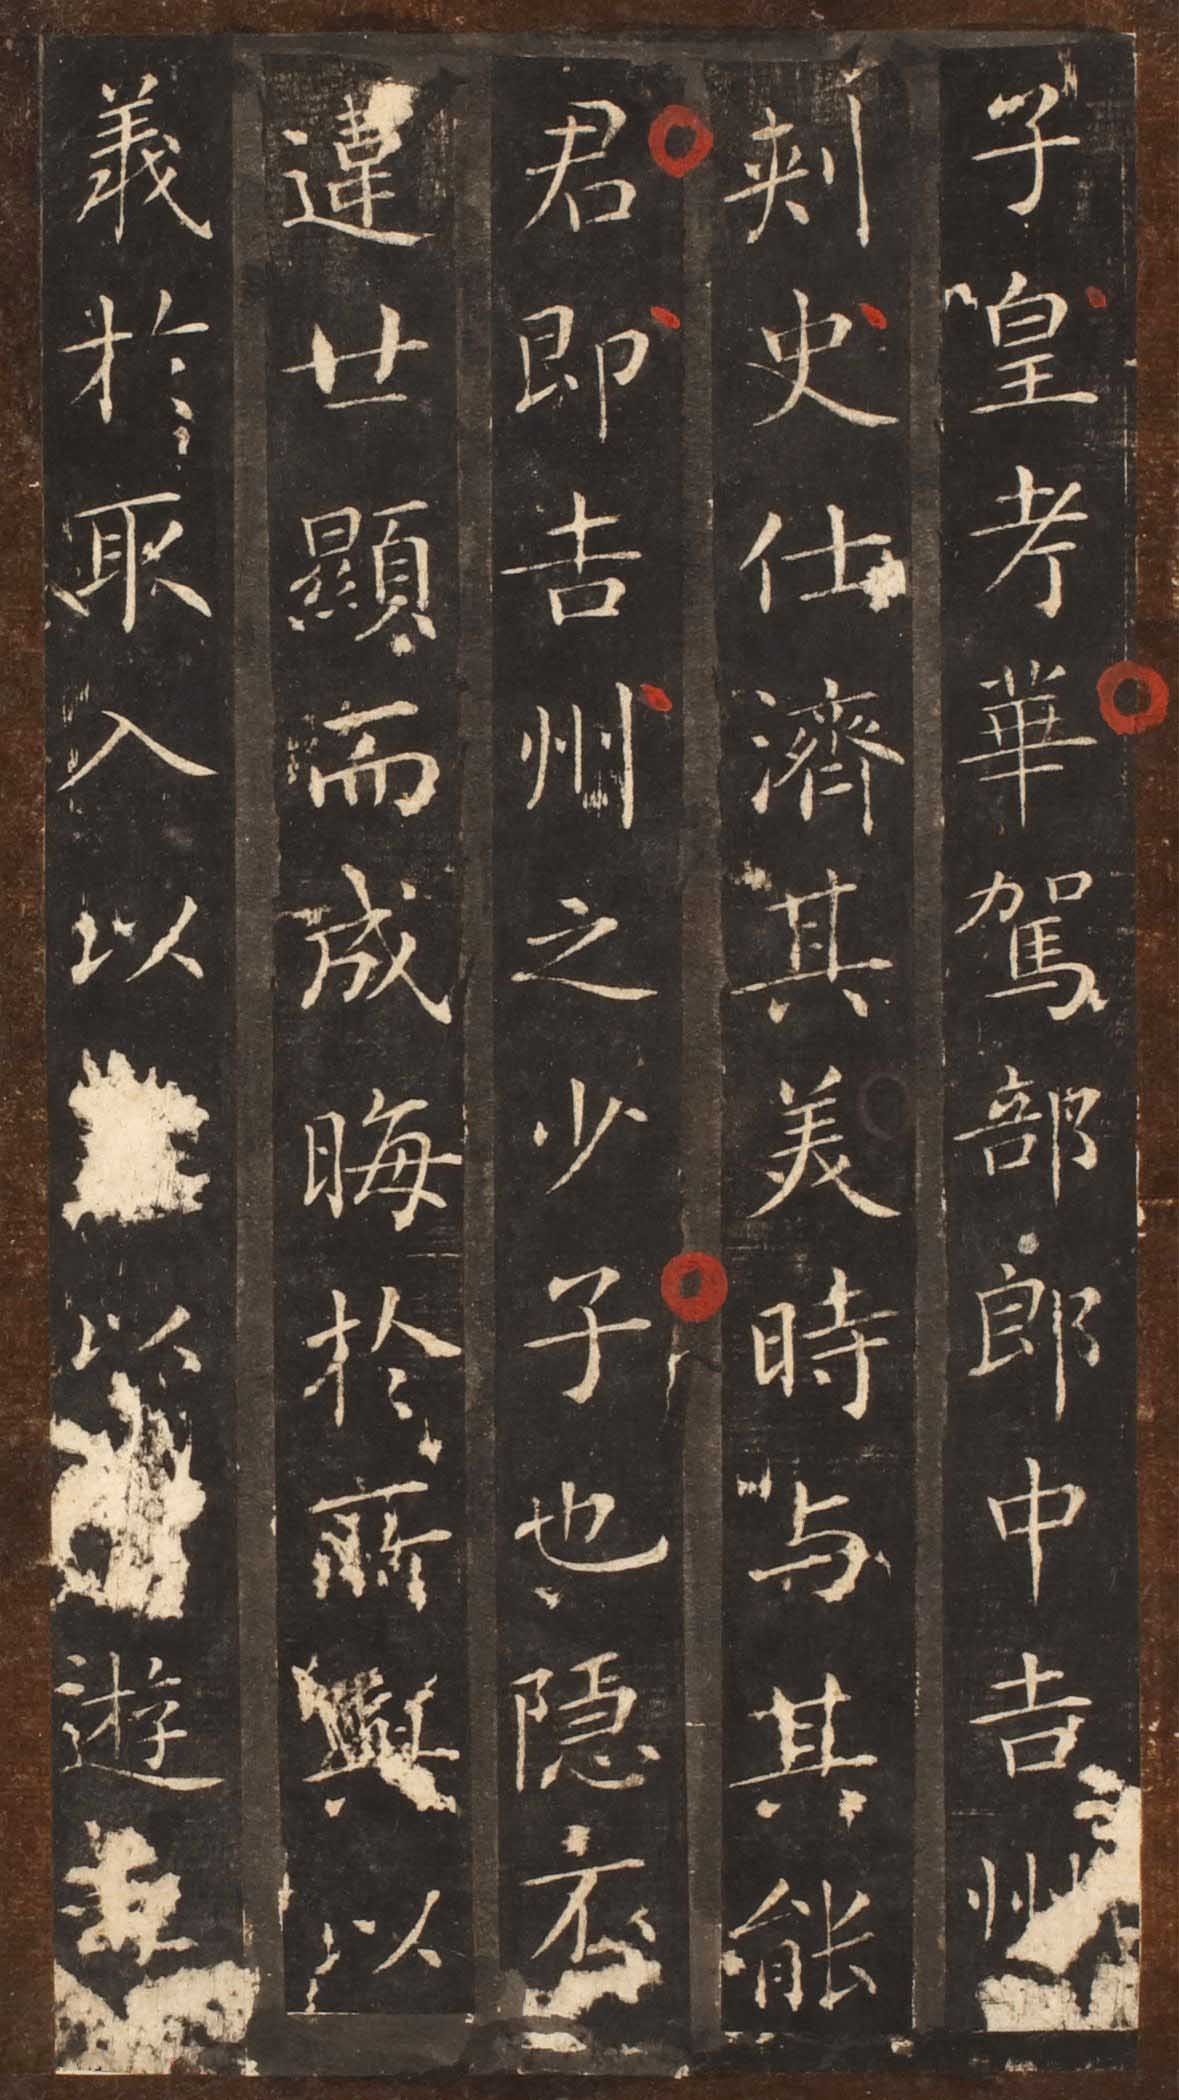 子皇考華駕部郎中吉州
刾史仕濟其美時与其能
君即吉州之少子也隠不
違廿顯而成晦於所與以
義於取入以以遊